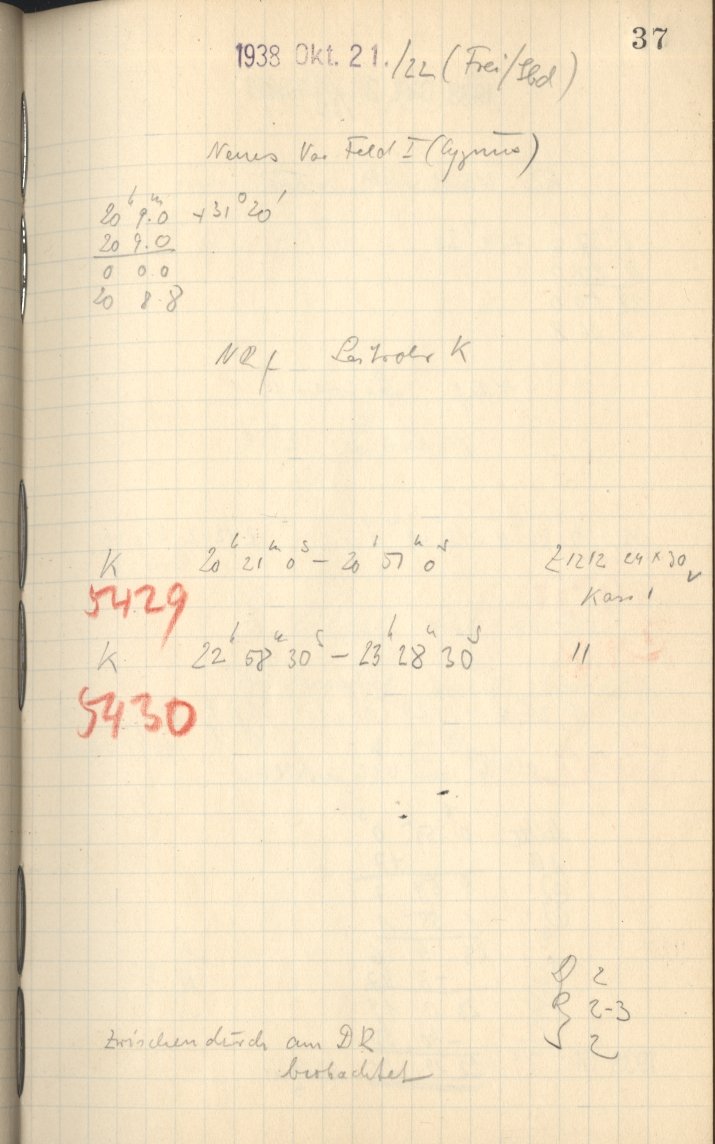 37
1938 Okt. 21./22 (Frei/Sbd)
Neues Var Feld I (Cygnus)
20ʰ 9.ᵐ0 +31°20'
20 9.0
0 0.0
20 8.8
Leitrohr K
K 20ʰ 21ᵐ 0ˢ – 20ʰ 51ᵐ 0ˢ Z1212 24×30
Kass 1
5429
K 22ʰ 58ᵐ 30ˢ – 23ʰ 28ᵐ 30ˢ "
5430
D 2
2-3
2
Zwischendurch am DR
beobachtet